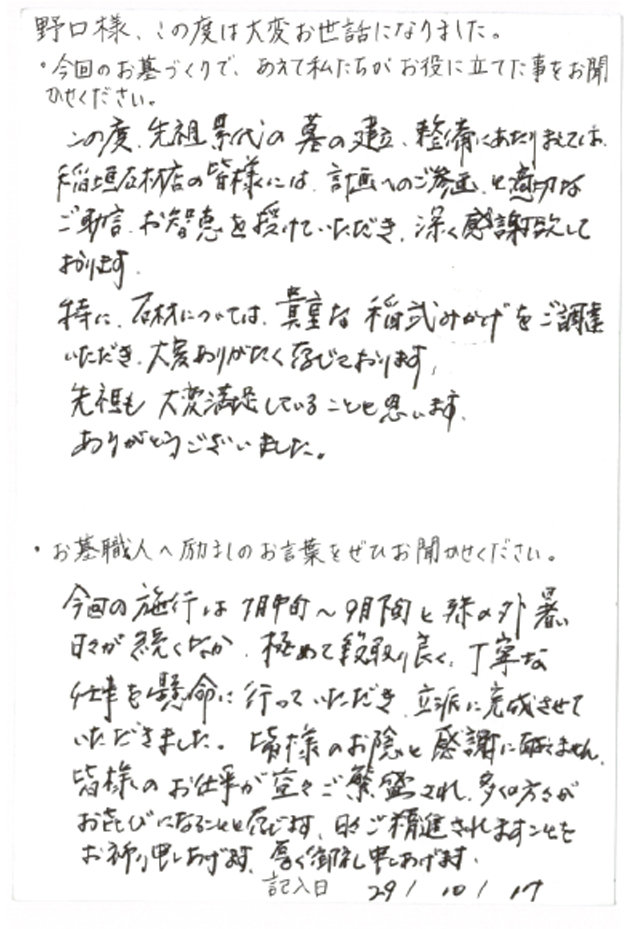 野口様、この度は大変お世話になりました。
・今回のお墓づくりで、あえて私たちがお役に立てた事をお聞
かせください。
この度、先祖累代の墓の建立、整備にあたりましては、
稲垣石材店の皆様には、計画へのご参画、と適切な
ご助言、お智恵を授けていただき、深く感謝致して
おります。
特に、石材については、貴重な稲武みかげをご調達
いただき、大変ありがたく存じております。
先祖も大変満足していることと思います。
ありがとうございました。
・お墓職人へ励ましのお言葉をぜひお聞かせください。
今回の施行は7月中旬〜9月下旬と殊の外暑い
日々が続くなか、極めて段取り良く、丁寧な
仕事を懸命に行っていただき、立派に完成させて
いただきました。皆様のお陰と感謝に耐えません。
皆様のお仕事が益々ご繁盛され、多くの方々が
お喜びになることと存じます、日々ご精進されますことを
お祈り申しあげます、厚く御礼申しあげます。
記入日 29/10/17